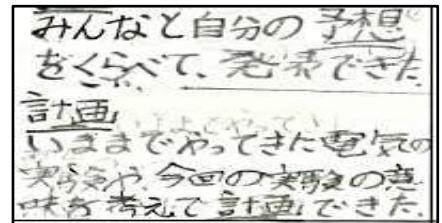 みんなと自分の予想
をくらべて、発表できた
計画
いままでやってきた電気の
実験や、今回の実験の意
味を考えて計画できた。